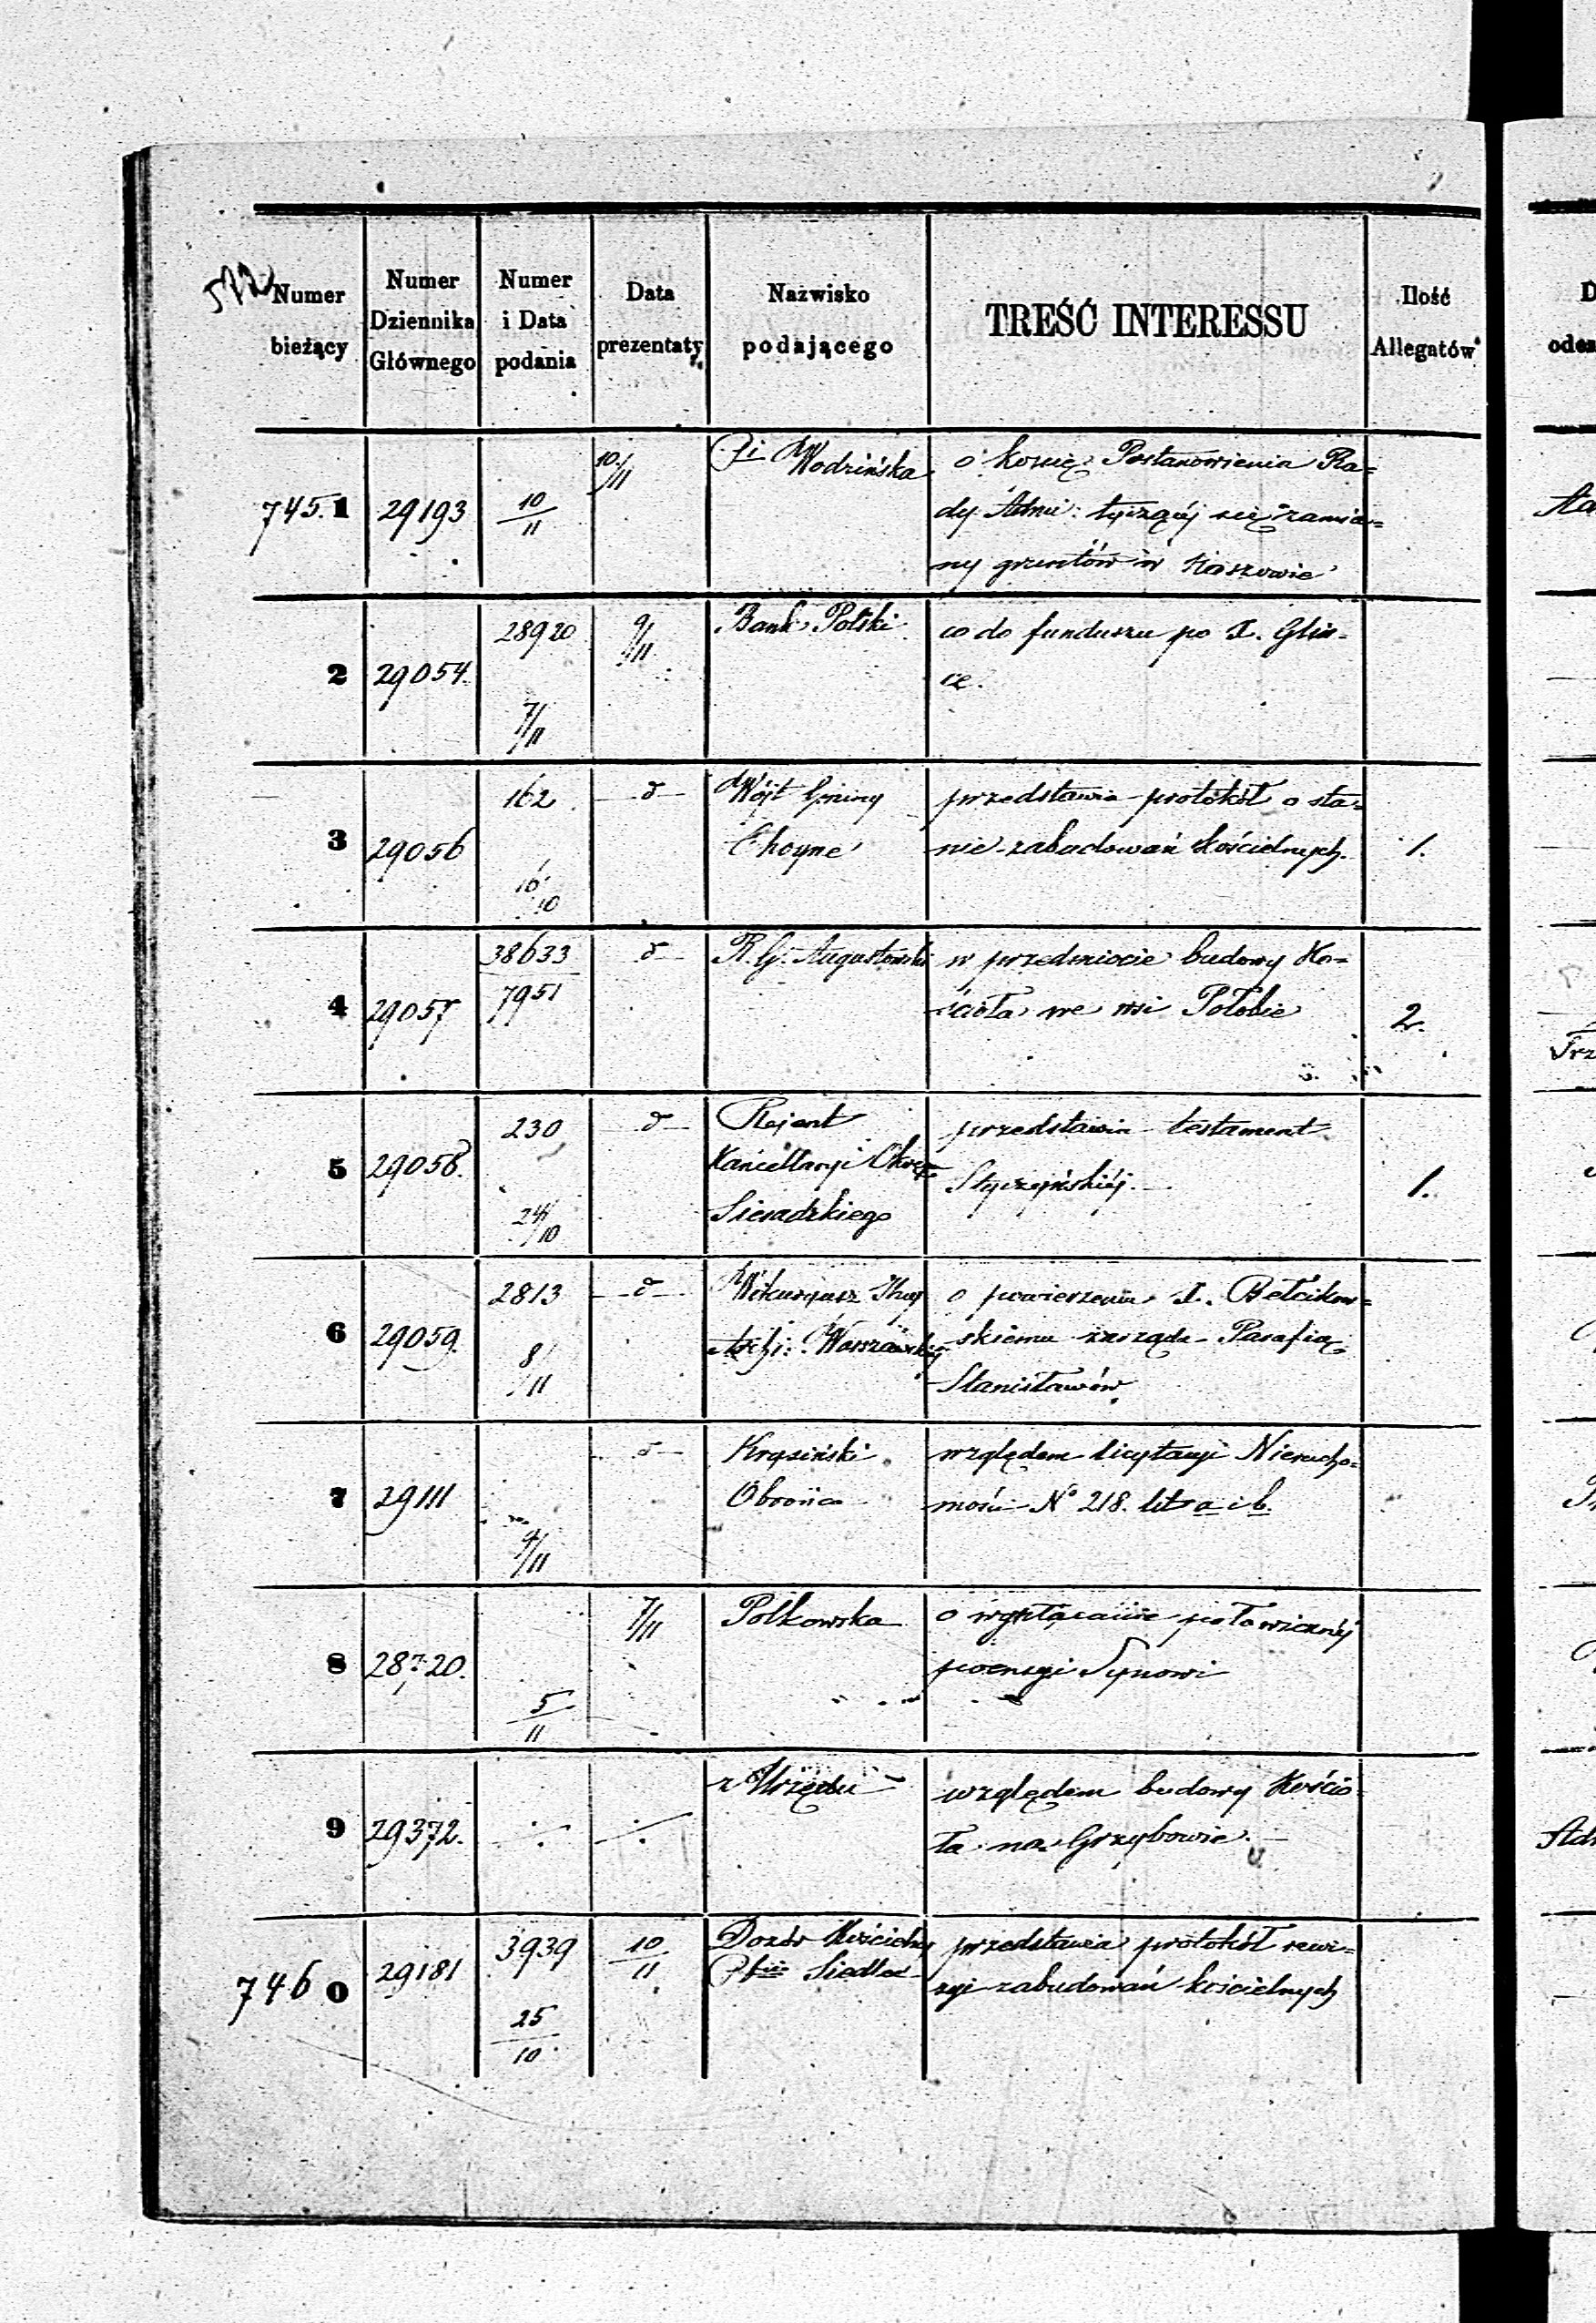 Numer bieżący
Numer Dziennika Głównego
Numer i Data podania
Data prezentaty
Nazwisko podającego
TREŚĆ INTERESSU
Ilość Allegatów
745.1 29193 10/11 10/11 Wodzińska o kopię Postanowienia Ra=
dy Admi: tyczącej się zamia=
ny gruntów w
2 29054. 28920 7/11 9/11 Bank Polski co do funduszu po X. Glin=
ce.
3 29056 162 16/10 d Wójt Gminy przedstawia protokół o sta=
Choyne nie zabudowań kościelnych. 1.
4 29057 38633/7951 d R. G. Augustowski w przedmiocie budowy Ko=
ścioła we wsi 2.
5 29058. 230 24/10 d Rejent przedstawia testament
Kancellaryi Okręg
Styczyńskiéj. 1.
Sieradzkiego
6 29059. 2813 8/11 d o powierzeniu X.
Archi: Warszawskiéj skiemu zarządu Parafią
Stanisławów.
7 29111 9/11 d Krysiński względem licytacyi Nierucho=
Obrońca mości No 218. litr a i b.
8 28720. 5/11 7/11 Polkowska o wypłacanie połowicznéj
pensyi Synowi
9 29372. z Urzędu względem budowy Kościo
ła na Grzybowie.
746 0 29181 3939 25/10 10/11 Dozór Kościelny przedstawia protokół rewi=
Siedlec zyi zabudowań kościelnych